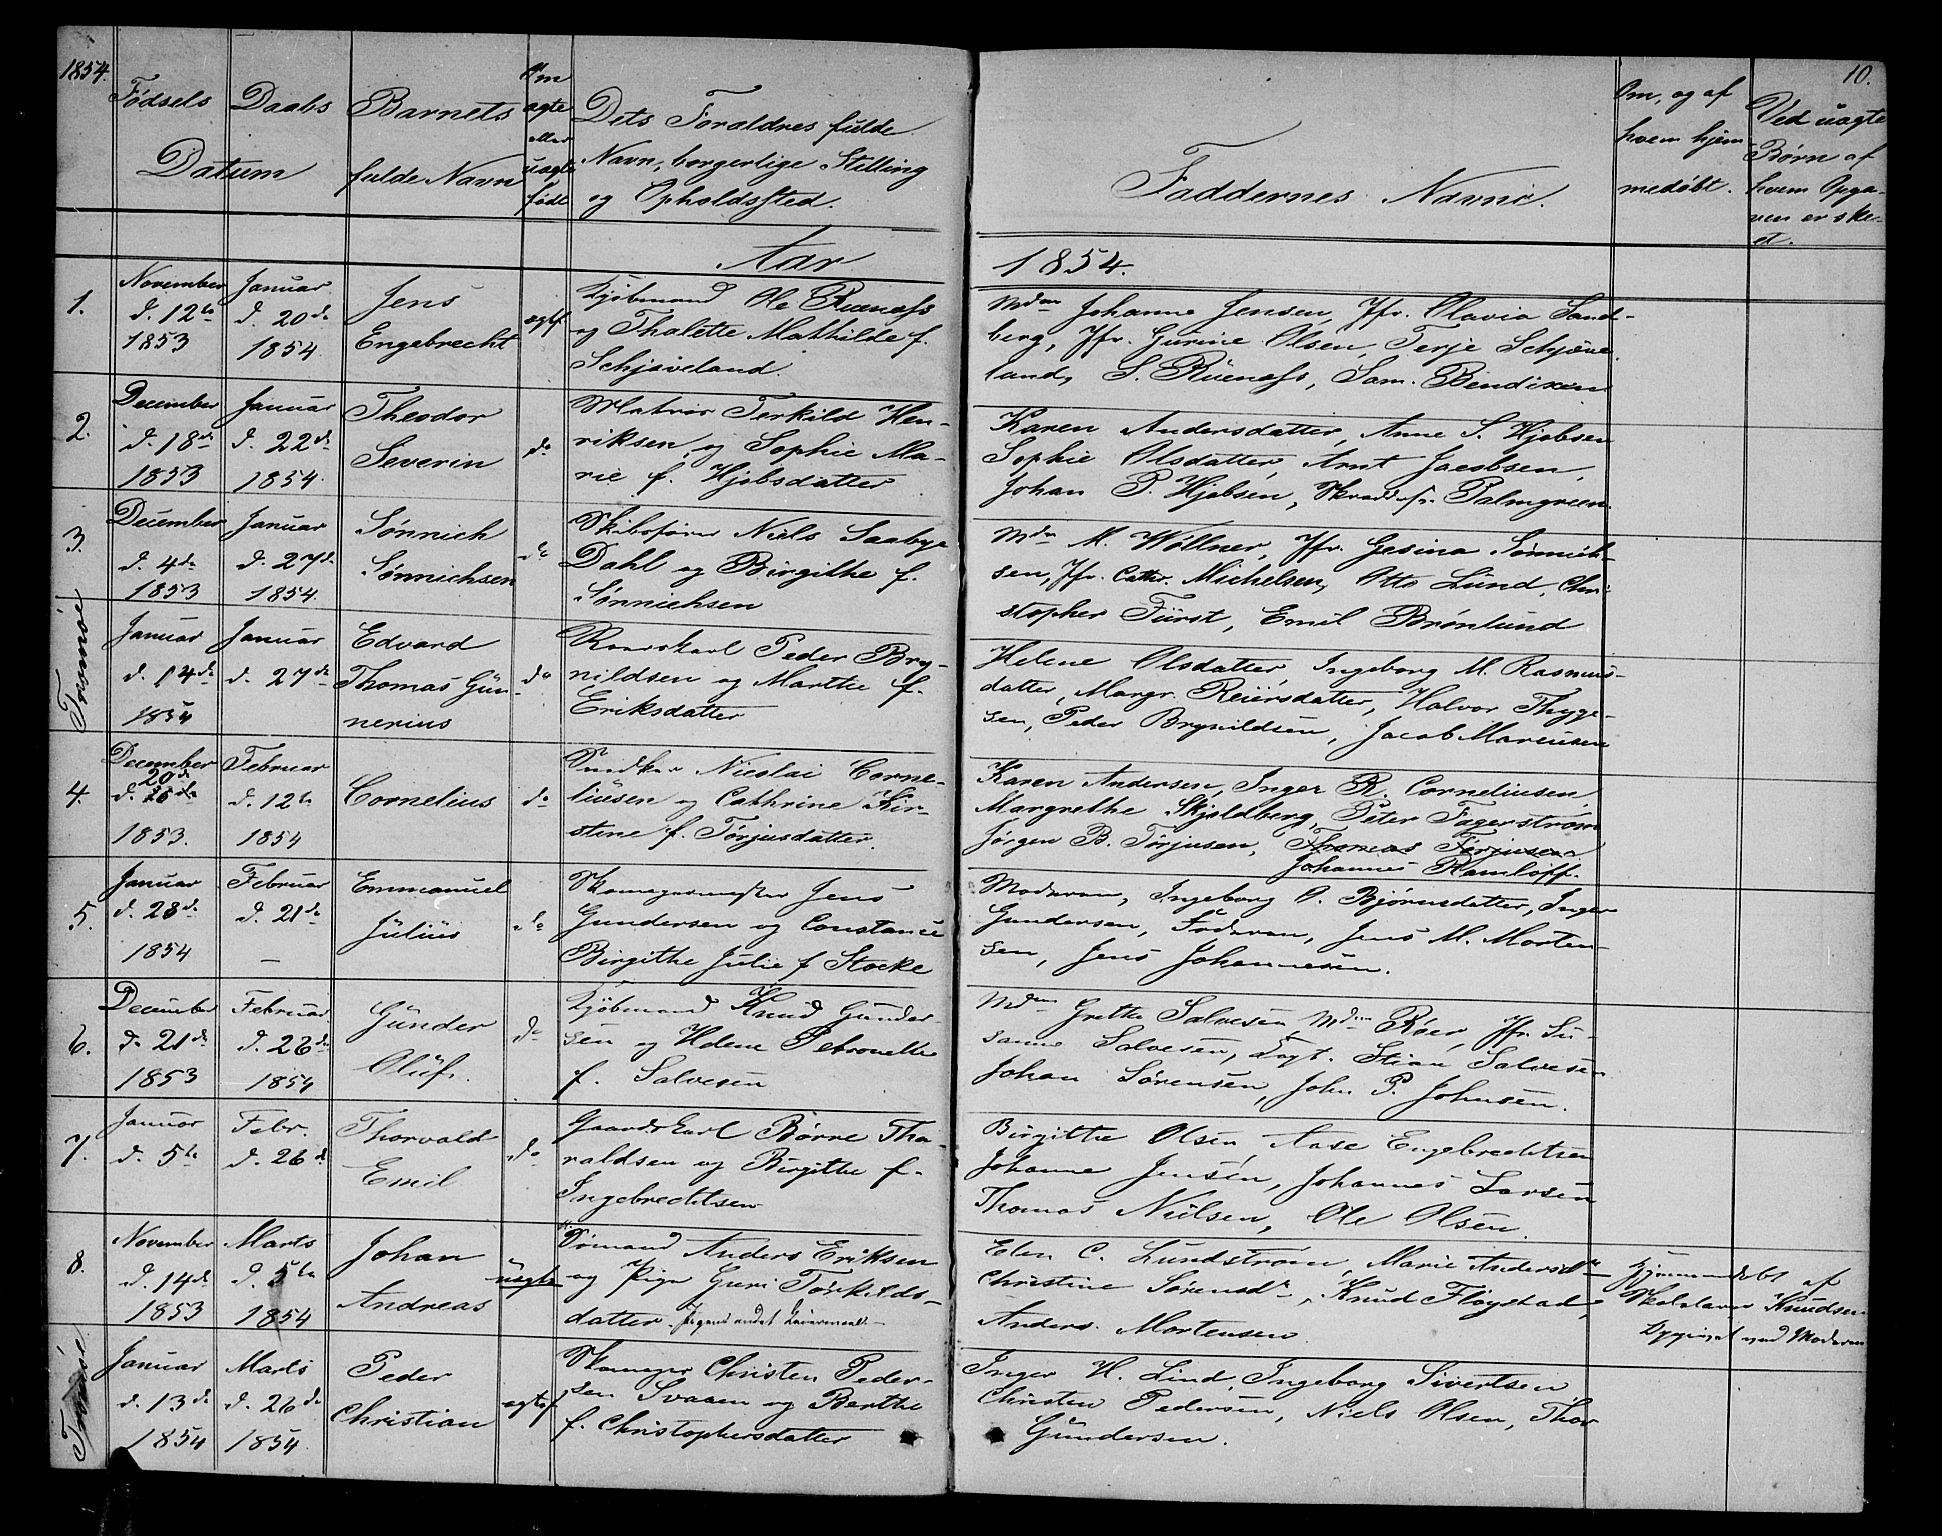 1854.
10.
Fødsels Daabs
Datum
Barnets
fulde Navn
Om
ægte
eller
uægte
født
Dets Forældres fulde
Navn, borgerlige Stilling
og Opholdssted.
Faddernes Navne.
Om, og af
hvem hjem-
medøbt.
Ved uægte
Børn af
hvem Opga-
ven er ske-
et.
Aar 1854.
1.
November
d. 12te
1853
Januar
d. 20de
1854.
Jens
Engebrecht
ægtef.
Kjøbmand Ole Ruenæss
og Thalette Mathilde f.
Schjøveland.
Mdm Johanne Jensen, Jfr. Olavia Sand-
berg, Jfr. Gurine Olsen, Terje Schjøve-
land, S. Ruenæss, Sam. Bendixen
2.
December
d. 18de
1853
Januar
d. 22de
1854.
Theodor
Severin
do
Matros Terkild Hen-
riksen og Sophie Ma-
rie f. Hjobsdatter
Karen Andersdatter, Anne S. Hjobsen
Sophie Olsdatter, Arnt Jacobsen,
Johan P. Hjobsen, Palmgreen.
3.
December
d. 4de
1853
Januar
d. 27de
1854.
Sønnich
Sønnichsen
do
Skibsfører Niels Saabye
Dahl og Birgithe f.
Sønnichsen
Mdm M. Wöllner, Jfr. Gesina Sønnich-
sen, Jfr. Cathr. Michelsen, Otto Lund, Chri-
stopher Fürst, Emil Brønlund
Tromøe
Januar
d. 14de
1854
Januar
d. 27de
Edvard
Thomas Gün-
nerius
do
Roerskarl Peder Bry-
nildsen og Marthe f.
Eriksdatter
Helene Olsdatter, Ingeborg M. Rasmus-
datter, Margr. Reiersdatter, Halvor Thyge-
sen, Peder Brynildsen, Jacob Marcusen
4.
December
20de
d.
1853.
Februar
d. 12te
1854
Cornelius
do
Snedker Nicolai Corne-
liusen og Cathrine Kir-
stine f. Tørjusdatter.
Karen Andersen, Inger R. Corneliusen,
Margrethe Skjoldberg, Peter Fagerstrøm
Jørgen B. Tørjusen, Thomas Tørjusen
Johannes Ramloff.
5.
Januar
d. 23de
1854
Februar
d. 21de
—
Emmanuel
Julius
do
Skomagermester Jens
Gundersen og Constance
Birgithe Julie f. Stocke
Moderen, Ingeborg O. Bjørnsdatter, Inger
Gundersen, Faderen, Jens M. Morten-
sen, Jens Johannesen.
6.
December
d. 21de
1853
Februar
d. 23de
1854
Günder
Oluf.
do
Kjøbmand Knud Gunder-
sen og Helene Petronelle
f. Salvesen
Mdm Grethe Salvesen, Mdm Röer, Jfr. Su-
sanne Salvesen, Stian Salvesen
Johan Sørensen, John P. Johnsen.
7.
Januar
d. 5te
Febr.
d. 26de
Thorvald
Emil
do
Gaardskarl Børre Tha-
raldsen og Birgithe f.
Ingebrechtsen
Birgitte Olsen, Aase Engebrechtsen
Johanne Jensen, Johannes Larsen
Thomas Nielsen, Ole Olsen.
8.
November
d. 14de
1853
Marts
d. 5te
1854
Johan
Andreas
uægte
Sømand Anders Eriksen
og Pige Guri Tørkilds-
datter. Jegens andet Leiermaal.
Elen C. Lundstrøm, Marie Andersdr
Christine Sørensdr, Knud Fløystad,
Anders Mortensen.
Hjemmedøbt af
Skolelærer Knudsen
Opgivet ved Moderen
Tromøe
Januar
d. 13de
1854
Marts
d. 26de
1854.
Peder
Christian
ægtef.
Skomager Christen Peder-
sen Svaaen og Berthe
f. Christophersdatter
Inger H. Lind, Ingeborg Sivertsen
Christen Pedersen, Niels Olsen, Thor
Gundersen.